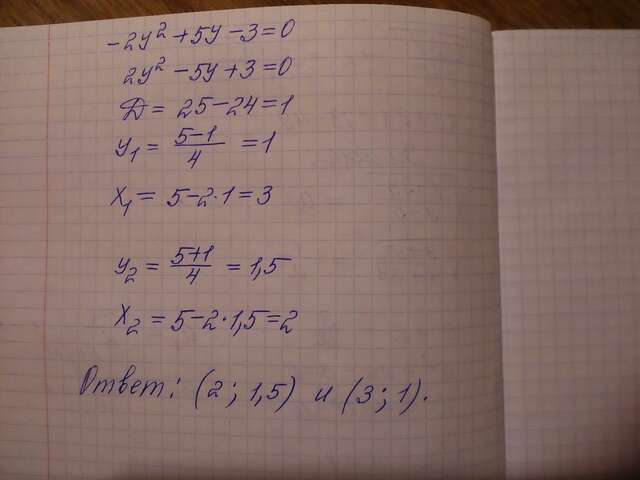 -2y² + 5y - 3 = 0
2y² - 5y + 3 = 0
Д = 25 - 24 = 1
y₁ = (5-1)/4 = 1
x₁ = 5 - 2·1 = 3
y₂ = (5+1)/4 = 1,5
x₂ = 5 - 2·1,5 = 2
Ответ: (2; 1,5) и (3; 1).